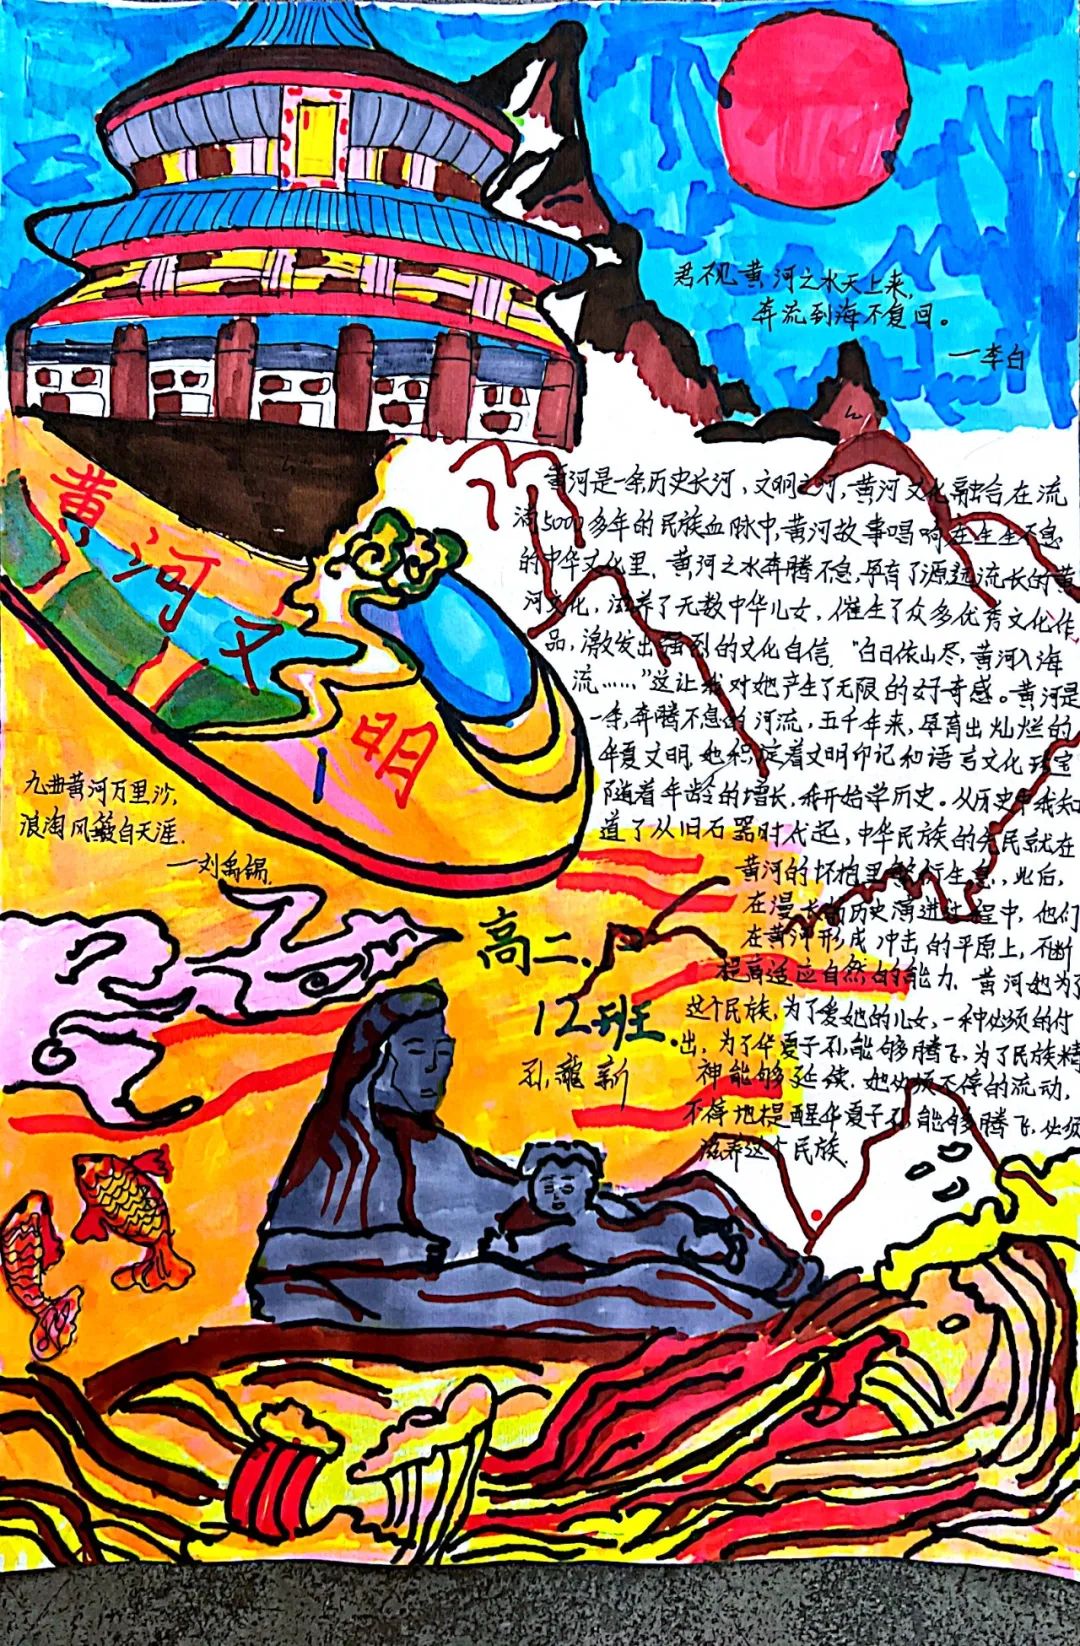 君不见黄河之水天上来,
奔流到海不复回。
一李白
黄河文明
黄河是一条历史长河,文明之河,黄河文化融合在流
淌5000多年的民族血脉中,黄河故事唱响在生生不息
的中华文化里.黄河之水奔腾不息,孕育了源远流长的黄
河文化,滋养了无数中华儿女,催生了众多优秀文化作
品,激发出强烈的文化自信."白日依山尽,黄河入海
流……"这让我对她产生了无限的好奇感。黄河是
一条,奔腾不息的河流,五千年来,孕育出灿烂的
华夏文明.她积淀着文明印记和语言文化瑰宝
随着年龄的增长,我开始学历史。从历史中我知
道了从旧石器时代起,中华民族的先民就在
黄河的怀抱里繁衍生息,此后,
在漫长的历史演进过程中,他们
在黄河形成冲击的平原上,不断
提高适应自然的能力.黄河她为了
这个民族,为了爱她的儿女,一种必须的付
出,为了华夏子孙能够腾飞,为了民族精
神能够延续.她必须不停的流动,
不停地提醒华夏子孙能够腾飞,必须
滋养这个民族.
九曲黄河万里沙,
浪淘风簸自天涯.
一刘禹锡.
高二.
12班.
孙龍新